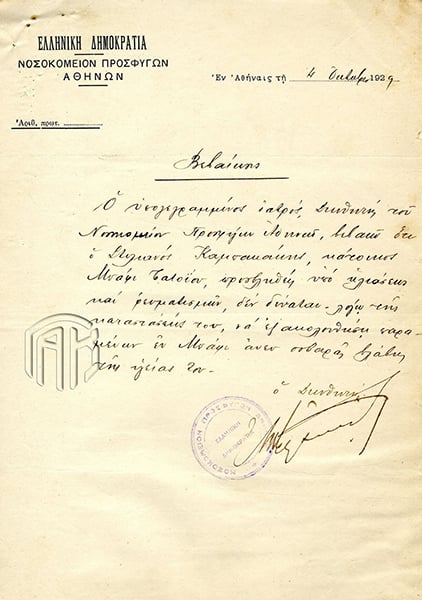 ΕΛΛΗΝΙΚΗ ΔΗΜΟΚΡΑΤΙΑ
ΝΟΣΟΚΟΜΕΙΟΝ ΠΡΟΣΦΥΓΩΝ
ΑΘΗΝΩΝ
Ἐν Ἀθήναις τῇ 4 Ὀκτωβρ 1929
Ἀριθ. πρωτ.
Βεβαίωσις
Ὁ ὑπογεγραμμένος ἰατρός, Διευθυντὴς τοῦ
Νοσοκομείου Προσφύγων Ἀθηνῶν, βεβαιῶ ὅτι
ὁ Στυλιανὸς Καμπανάκης, κάτοικος
Μπάφι Τατοΐου, προσβληθεὶς ὑπὸ
καὶ ρευματισμῶν, δὲν δύναται λόγῳ τῆς
καταστάσεώς του, νὰ ἐξακολουθήσῃ παρα-
μένων ἐν Μπάφι ἄνευ σοβαρᾶς βλάβης
τῆς ὑγείας του.-
ὁ Διευθυντὴς
ΝΟΣΟΚΟΜΕΙΟΝ ΠΡΟΣΦΥΓΩΝ
ΕΛΛΗΝΙΚΗ
ΔΗΜΟΚΡΑΤΙΑ